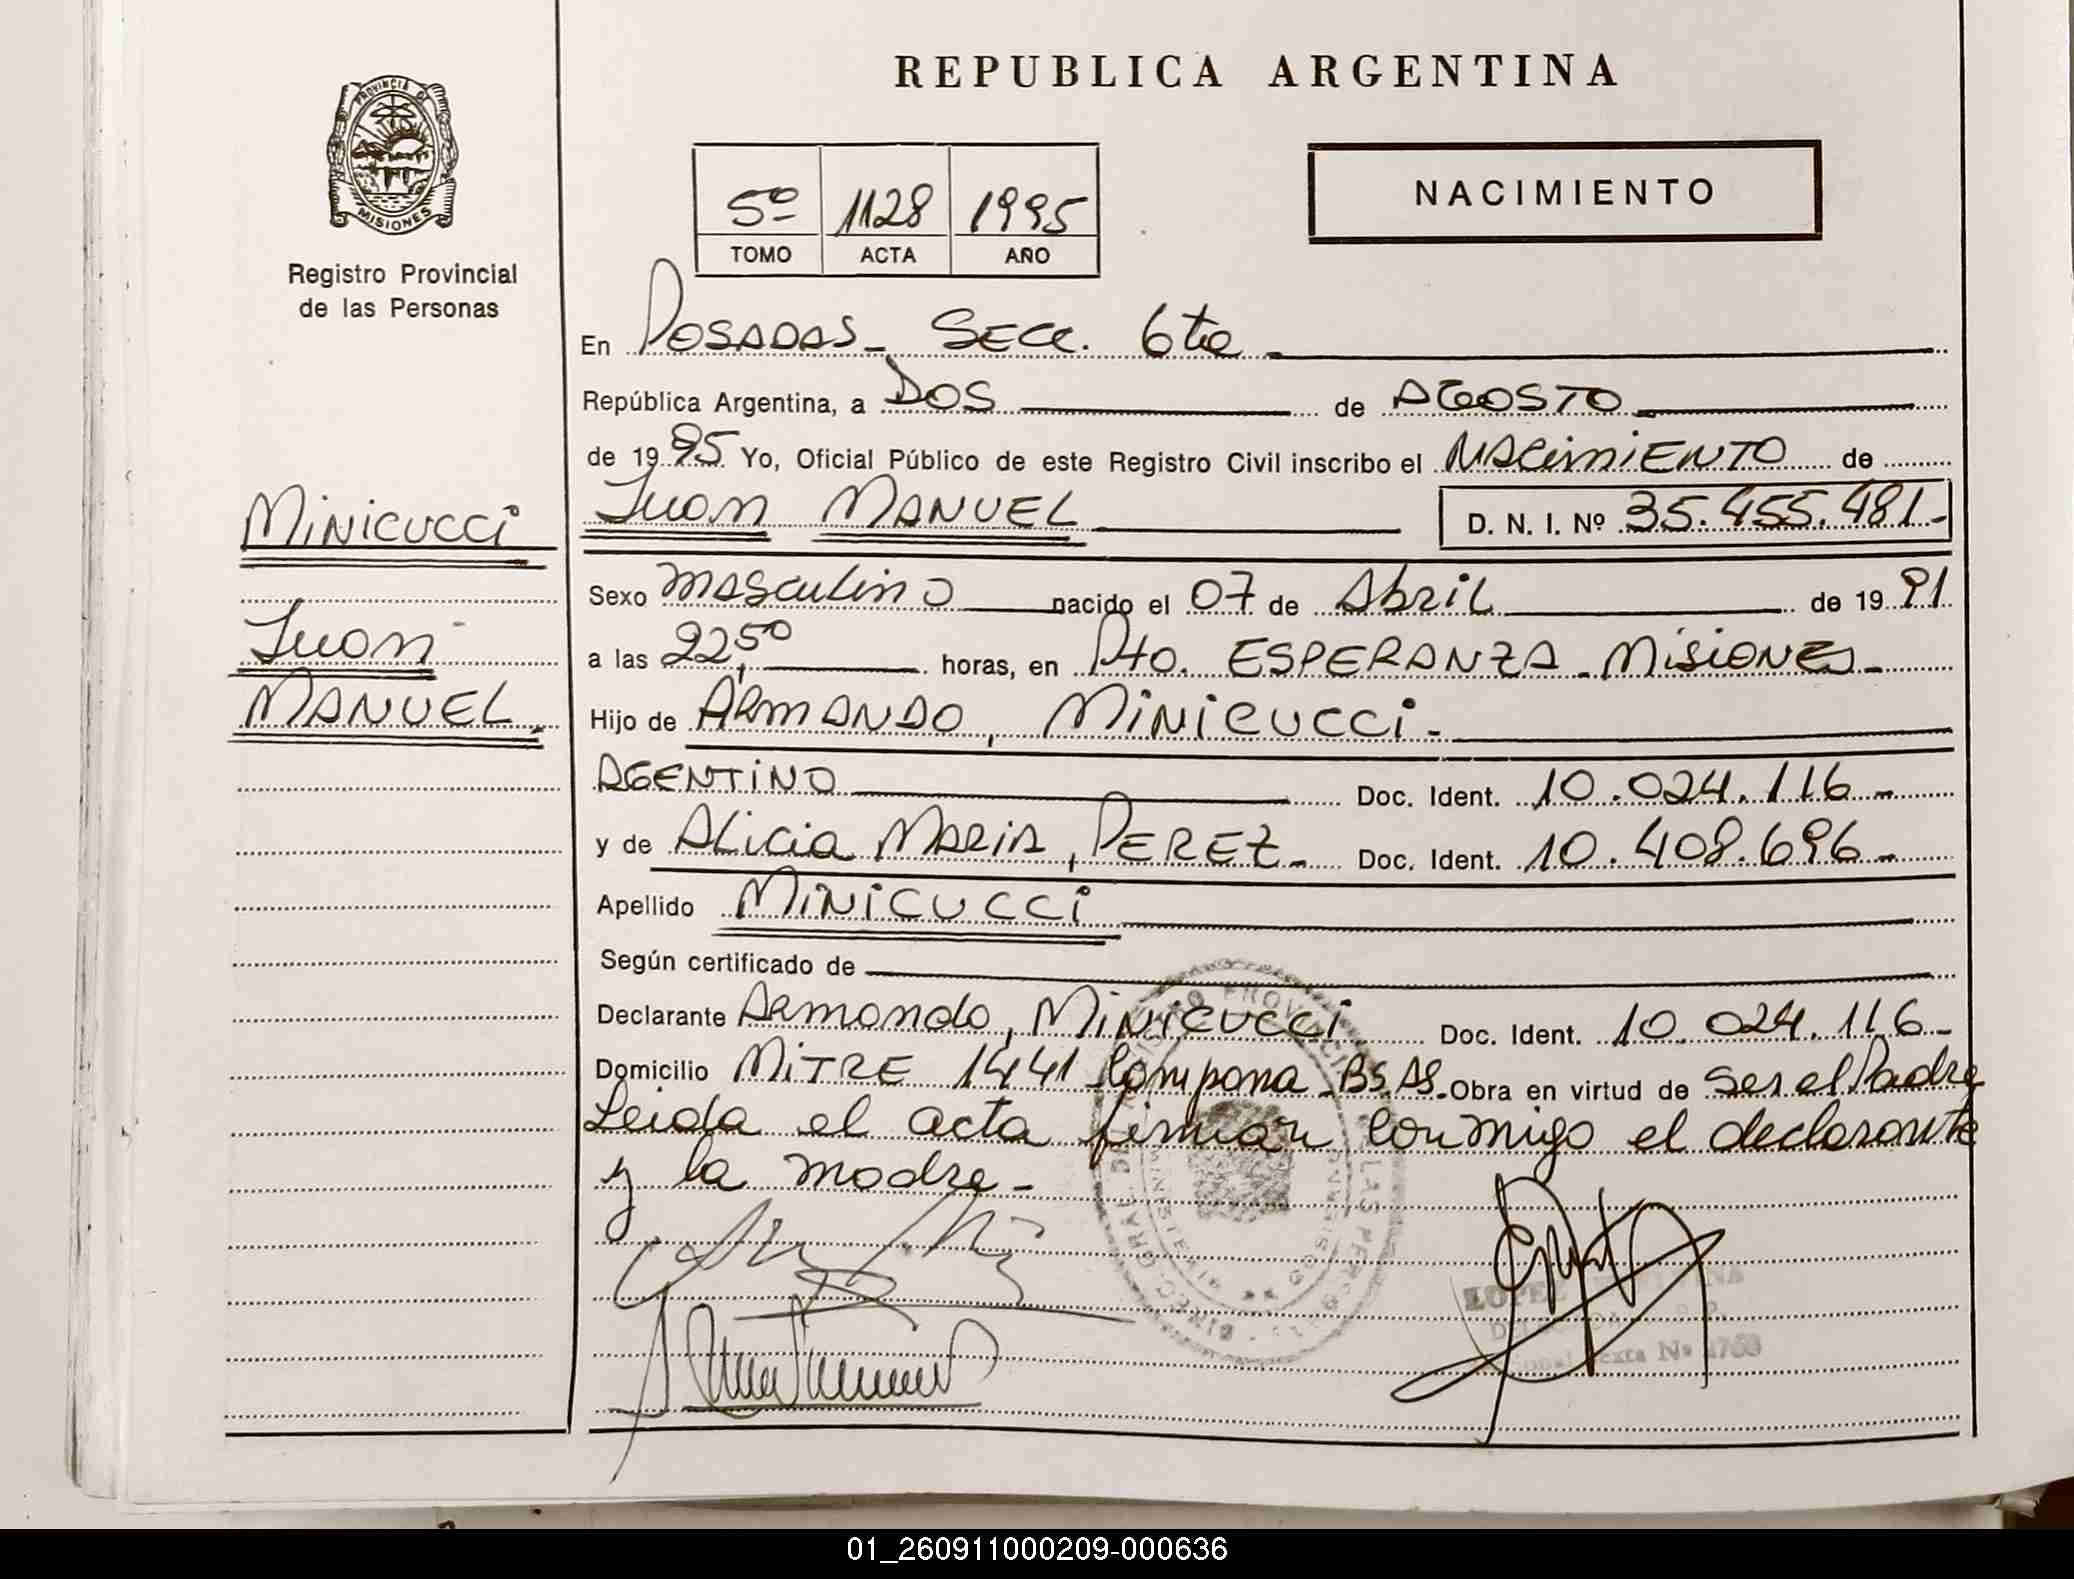 REPUBLICA ARGENTINA
PROVINCIA DE
MISIONES
Registro Provincial
de las Personas
5º 1128 1995
TOMO ACTA AÑO
NACIMIENTO
En POSADAS- SECC. 6ta
República Argentina, a DOS de AGOSTO
de 1995 Yo, Oficial Público de este Registro Civil inscribo el NACIMIENTO de
Juan MANUEL D. N. I. Nº 35.455.481.-
MINICUCCI
Juan
MANUEL.
Sexo masculino nacido el 07 de Abril de 1991
a las 22,50 horas, en Pto. ESPERANZA - MISIONES-
Hijo de ARMANDO, MINICUCCI.-
AGENTINO Doc. Ident. 10.024.116-
y de ALICIA MARIA, PEREZ- Doc. Ident. 10.408.696-
Apellido MINICUCCI
Según certificado de
Declarante Armando, MINICUCCI Doc. Ident. 10.024.116-
Domicilio MITRE 1441 Campana-BS.AS. Obra en virtud de ser el Padre
Leida el acta firman conmigo el declarante
y la madre-
LOPEZ
Sexta Nº
01_260911000209-000636